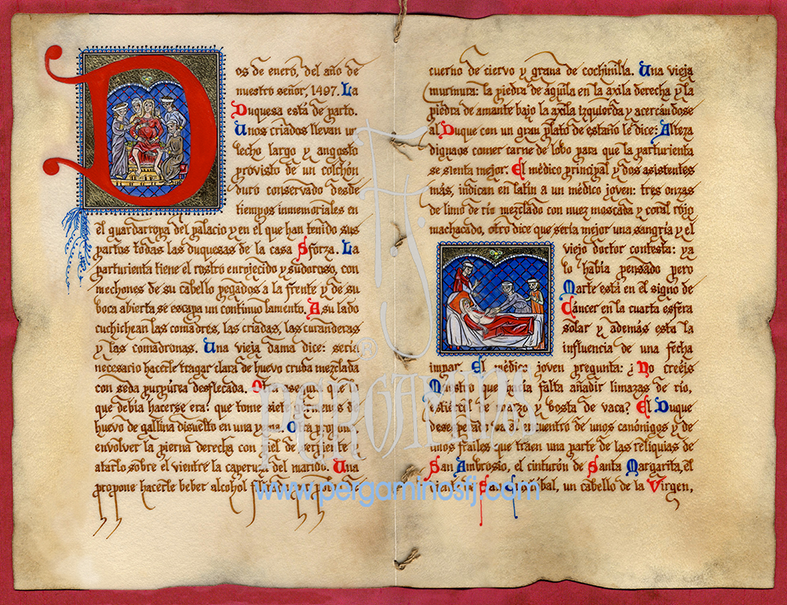 Dos de enero, del año de
nuestro señor, 1497. La
Duquesa está de parto.
Unos criados llevan un
lecho largo y angosto
provisto de un colchón
duro conservado desde
tiempos inmemoriales en
el guardarropa del palacio y en el que han tenido sus
partos todas las duquesas de la casa Sforza. La
parturienta tiene el rostro enrojecido y sudoroso, con
mechones de su cabello pegados a la frente y de su
boca abierta se escapa un continuo lamento. A su lado
cuchichean las comadres, las criadas, las curanderas
y las comadronas. Una vieja dama dice: sería
necesario hacerle tragar clara de huevo cruda mezclada
con seda purpúrea desflecada. Otra asegura que lo
que debía hacerse era: que tome siete gérmenes de
huevo de gallina disuelto en una yema. Otra propone
envolver la pierna derecha con piel de serpiente y
atarlo sobre el vientre la caperuza del marido. Una
propone hacerle beber alcohol
cuerno de ciervo y grana de cochinilla. Una vieja
murmura: la piedra de águila en la axila derecha y la
piedra de amante bajo la axila izquierda y acercándose
al Duque con un gran plato de estaño le dice: Alteza
dignaos comer carne de lobo para que la parturienta
se sienta mejor. El médico principal y dos asistentes
más, indican en latín a un médico joven: tres onzas
de limo de río mezclado con nuez moscada y coral rojo
machacado, otro dice que sería mejor una sangría y el
viejo doctor contesta: ya
lo había pensado pero
Marte está en el signo de
Cáncer en la cuarta esfera
solar y además esta la
influencia de una fecha
impar. El médico joven pregunta: ¿No creéis
Maestro que haría falta añadir limazas de río,
estiércol de marzo y bosta de vaca? El Duque
desesperado va al encuentro de unos canónigos y de
unos frailes que traen una parte de las reliquias de
San Ambrosio, el cinturón de Santa Margarita, el
diente de San Cristóbal, un cabello de la Virgen,
PERGAMINOS
www.pergaminosfj.com